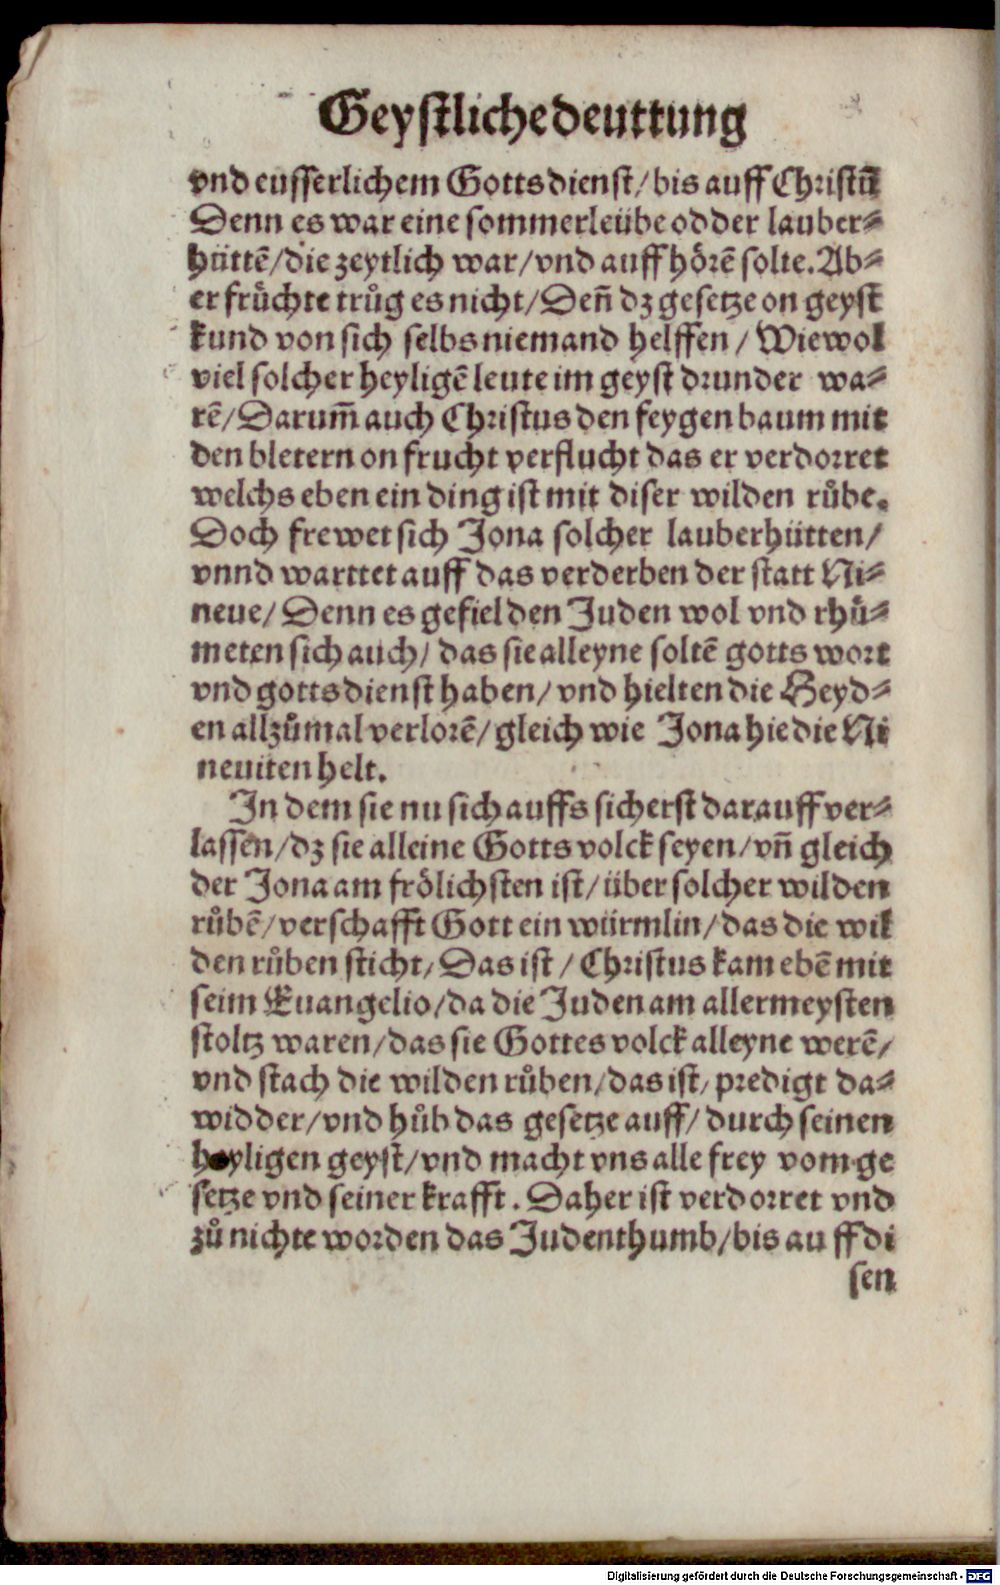 Geystliche deuttung
vnd eusserlichem Gottsdienst/bis auff Christū
Denn es war eine sommerleübe odder lauber⸗
hüttē/die zeytlich war/vnd auff hörē solte. Ab⸗
er früchte trůg es nicht/Deñ dz gesetze on geyst
kund von sich selbs niemand helffen/Wiewol
viel solcher heyligē leute im geyst drunder wa⸗
rē/Darum̄ auch Christus den feygenbaum mit
den bletern on frucht verflucht das er verdorret
welchs eben ein ding ist mit diser wilden růbe.
Doch frewet sich Jona solcher lauberhütten/
vnnd warttet auff das verderben der statt Ni⸗
neue/Denn es gefiel den Juden wol vnd rhů⸗
meten sich auch/das sie alleyne soltē gotts wort
vnd gottsdienst haben/vnd hielten die Heyd⸗
en allzůmal verlorē/gleich wie Jona hie die Ni
neuiten helt.
In dem sie nu sich auffs sicherst darauff ver⸗
lassen/dz sie alleine Gotts volck seyen/vñ gleich
der Jona am frölichsten ist/über solcher wilden
růbē/verschafft Gott ein würmlin/das die wil
den růben sticht/Das ist/Christus kam ebē mit
seim Euangelio/da die Juden am allermeysten
stoltz waren/das sie Gottes volck alleyne werē/
vnd stach die wilden růben/das ist/predigt da⸗
widder/vnd hůb das gesetze auff/durch seinen
heyligen geyst/vnd macht vns alle frey vom ge
setze vnd seiner krafft. Daher ist verdorret vnd
zů nichte worden das Judenthumb/bis auff di
sen
Digitalisierung gefördert durch die Deutsche Forschungsgemeinschaft - DFG